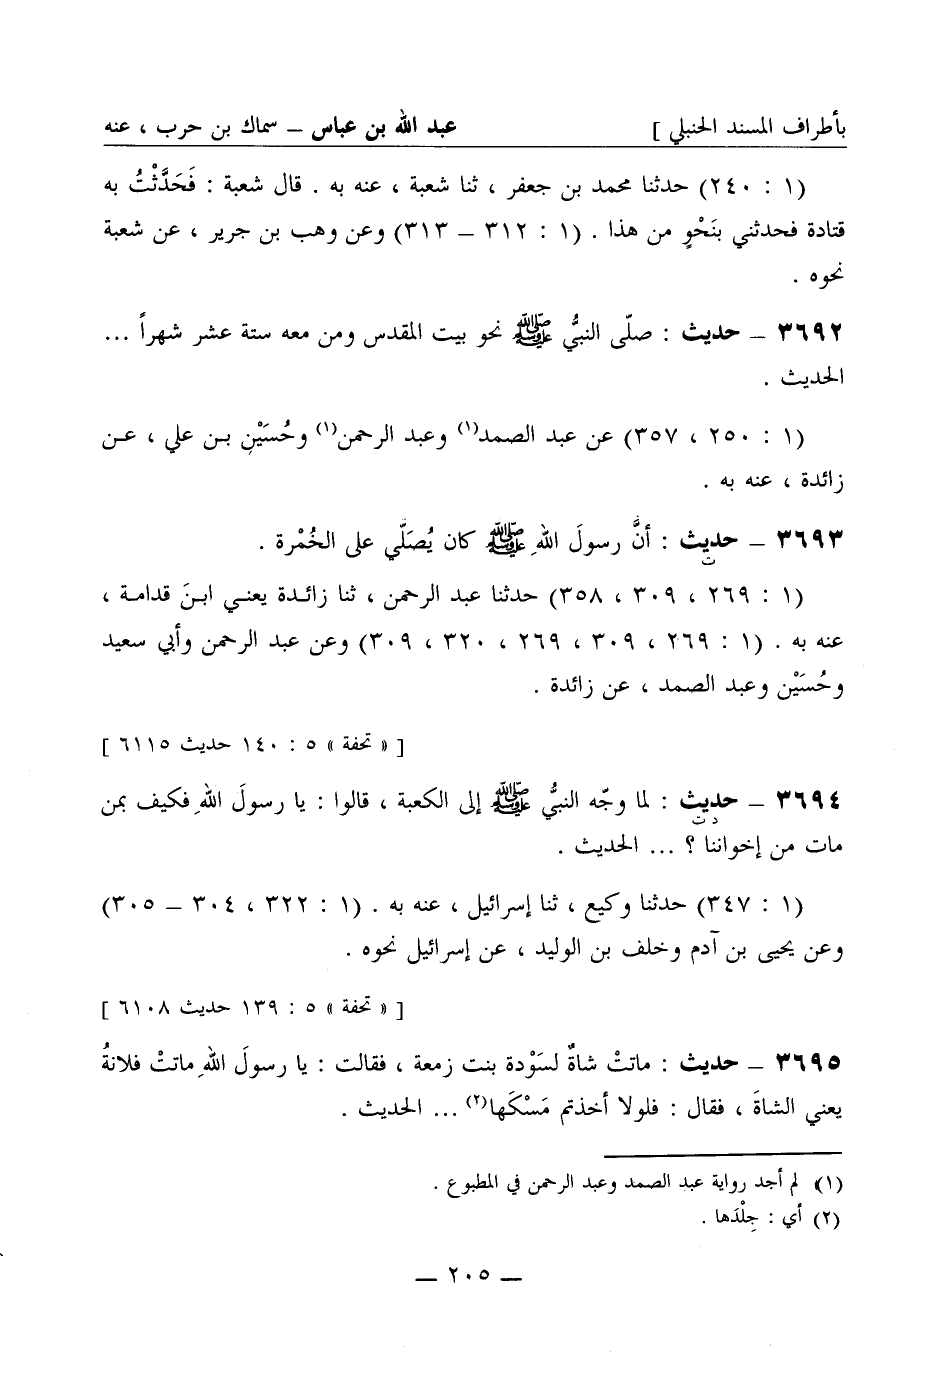 بأطراف المسند الحنبلي ] عبد الله بن عباس – سماك بن حرب ، عنه
(١ : ٢٤٠) حدثنا محمد بن جعفر ، ثنا شعبة ، عنه به . قال شعبة : فَحَدَّثْتُ به
قتادة فحدثني بنَحْوٍ من هذا . (١ : ٣١٢ – ٣١٣) وعن وهب بن جرير ، عن شعبة
نحوه .
٣٦٩٢ – حديث : صلّى النبيُّ ﷺ نحو بيت المقدس ومن معه ستة عشر شهراً ...
الحديث .
(١ : ٢٥٠ ، ٣٥٧) عن عبد الصمد(١) وعبد الرحمن(١) وحُسَيْنِ بـن علي ، عـن
زائدة ، عنه به .
٣٦٩٣ – حديث : أنَّ رسولَ اللهِ ﷺ كان يُصَلّي على الخُمْرة .
ت
(١ : ٢٦٩ ، ٣٠٩ ، ٣٥٨) حدثنا عبد الرحمن ، ثنا زائـدة يعنـي ابـنَ قدامـة ،
عنه به . (١ : ٢٦٩ ، ٣٠٩ ، ٢٦٩ ، ٣٢٠ ، ٣٠٩) وعن عبد الرحمن وأبي سعيد
وحُسَيْن وعبد الصمد ، عن زائدة .
[ « تحفة » ٥ : ١٤٠ حديث ٦١١٥ ]
٣٦٩٤ – حديث : لما وجّه النبيُّ ﷺ إلى الكعبة ، قالوا : يا رسولَ اللهِ فكيف بمن
د ت
مات من إخواننا ؟ ... الحديث .
(١ : ٣٤٧) حدثنا وكيع ، ثنا إسرائيل ، عنه به . (١ : ٣٢٢ ، ٣٠٤ – ٣٠٥)
وعن يحيى بن آدم وخلف بن الوليد ، عن إسرائيل نحوه .
[ « تحفة » ٥ : ١٣٩ حديث ٦١٠٨ ]
٣٦٩٥ – حديث : ماتتْ شاةٌ لسَوْدة بنت زمعة ، فقالت : يا رسولَ اللهِ ماتتْ فلانةُ
يعني الشاةَ ، فقال : فلولا أخذتم مَسْكَها(٢) ... الحديث .
(١) لم أجد رواية عبد الصمد وعبد الرحمن في المطبوع .
(٢) أي : جِلْدَها .
– ٢٠٥ –